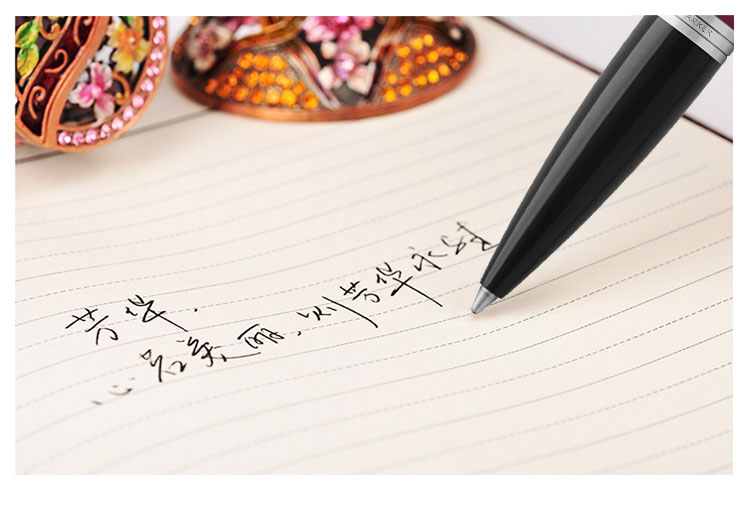 ARKER
芳华.
心若美丽、则芳华永驻